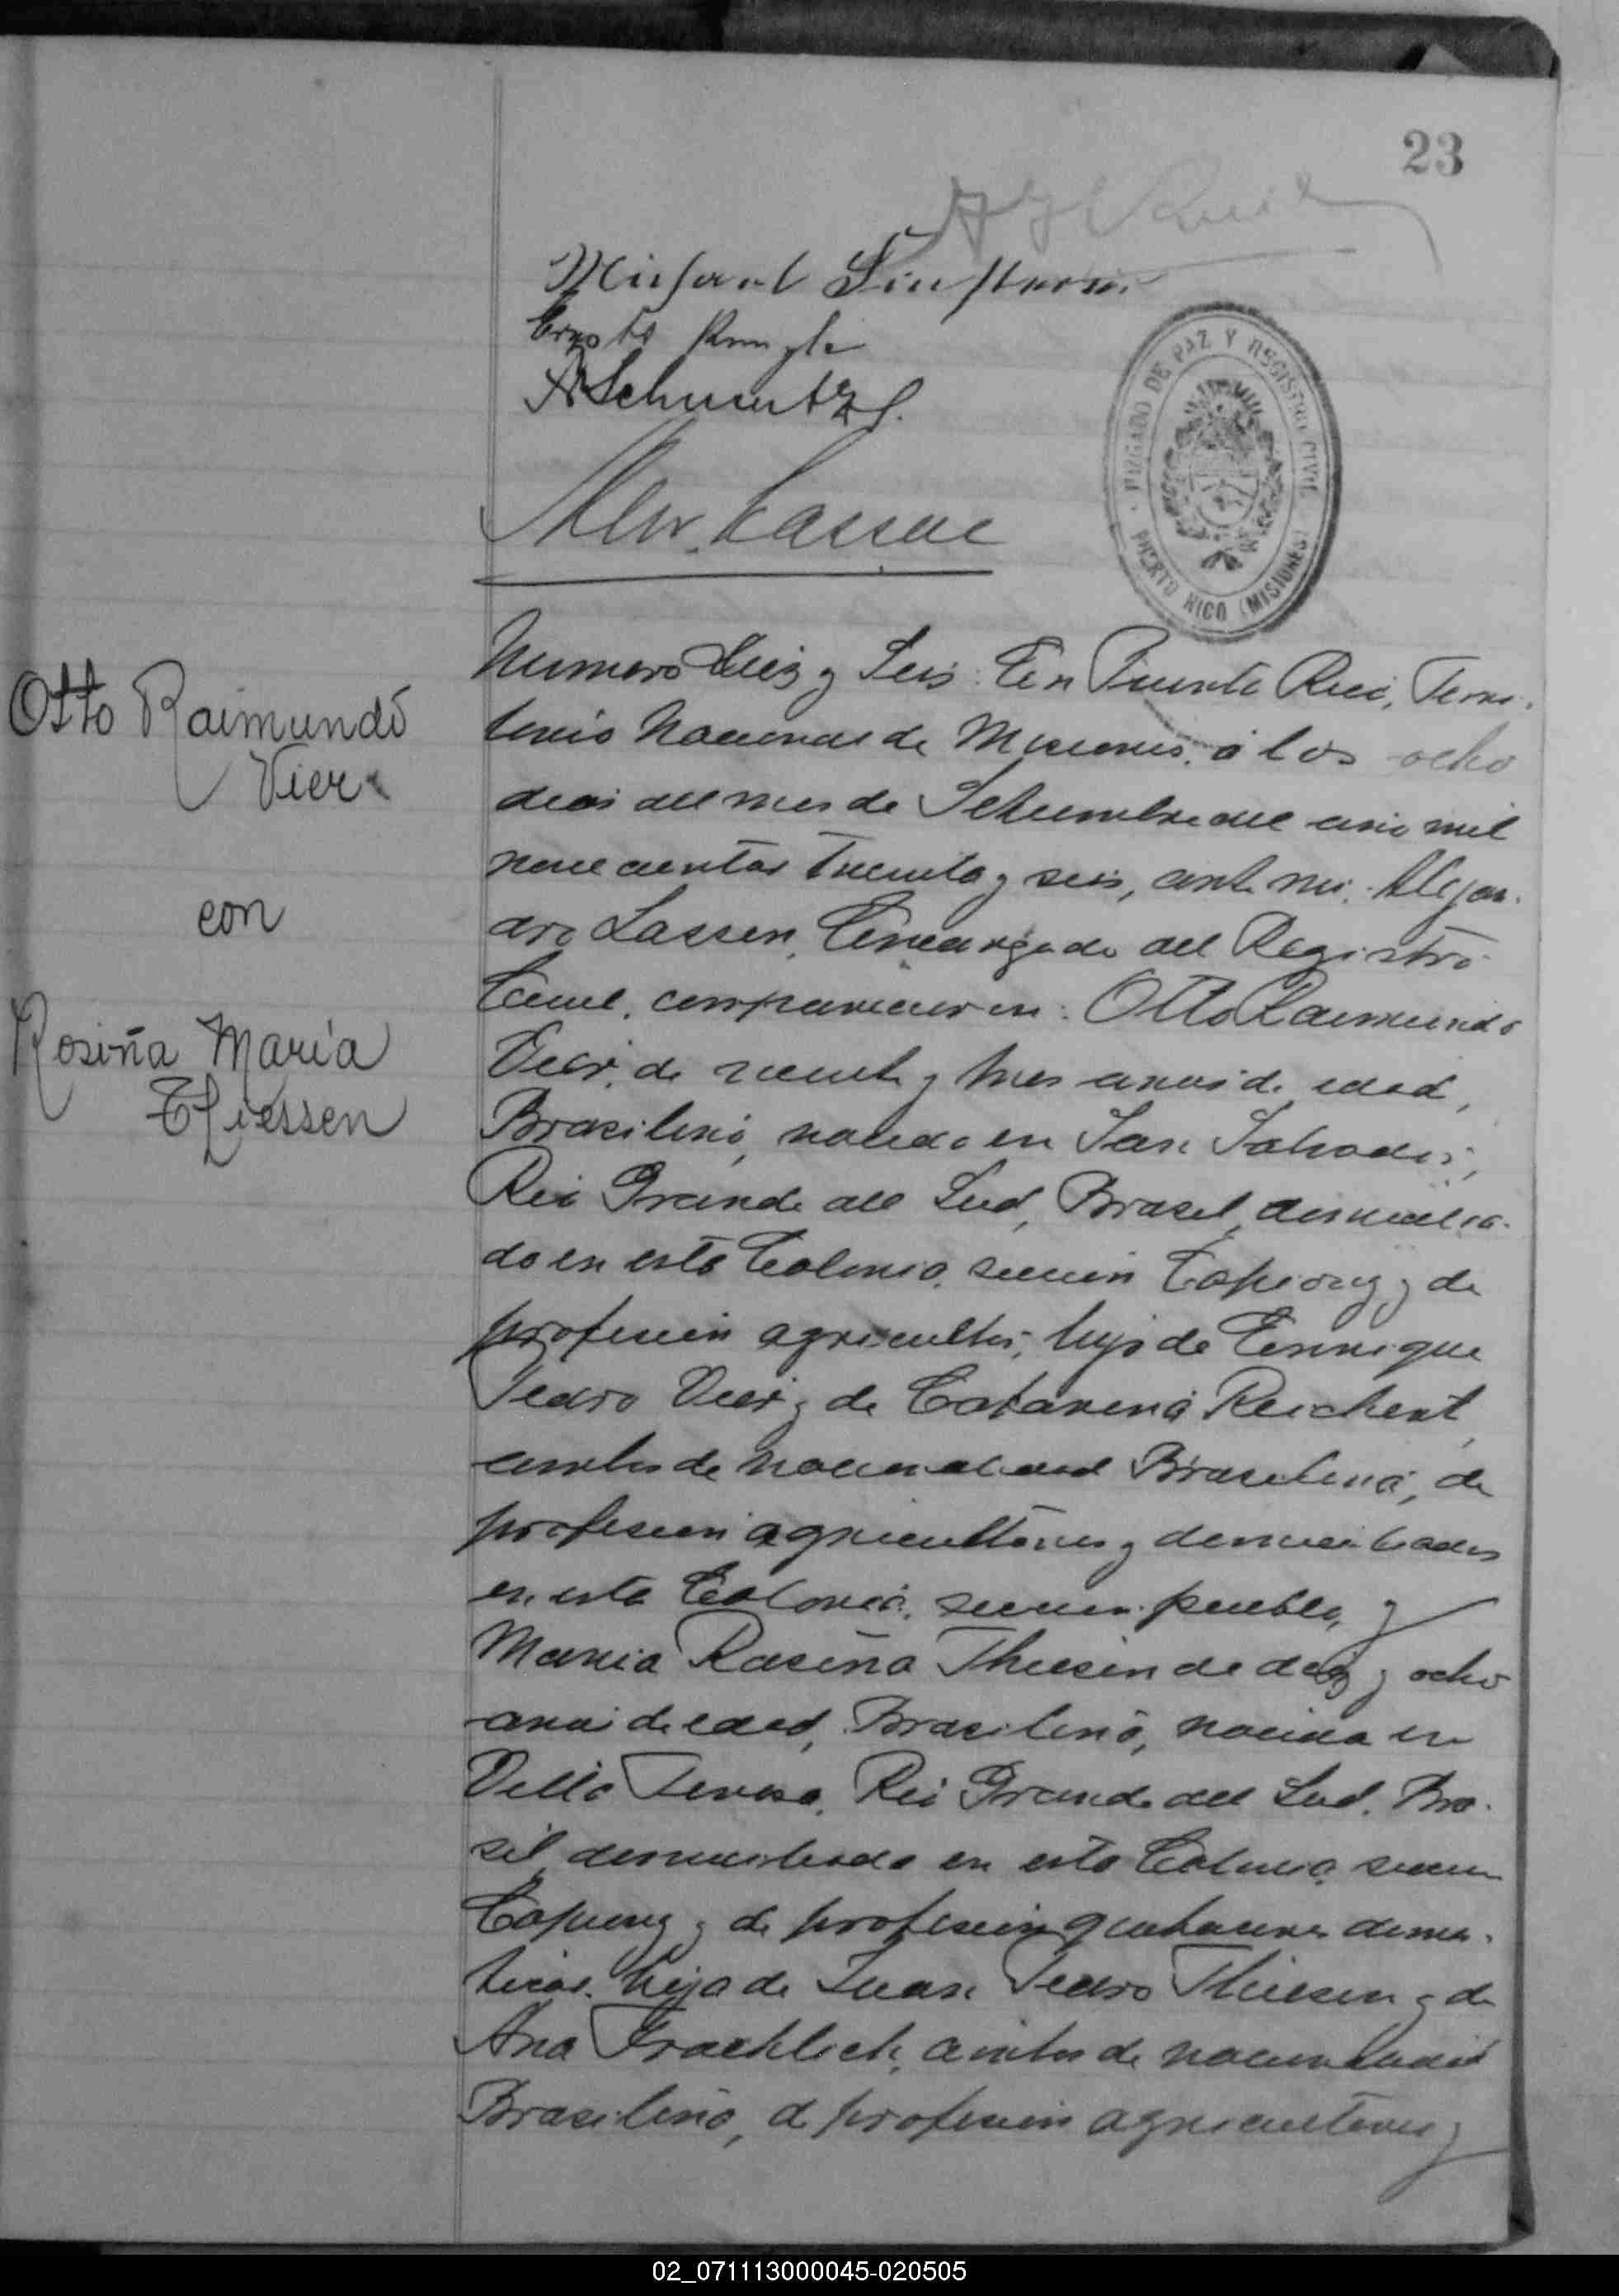 23
Ernesto
A Schwartz
Alej. Lassen
JUZGADO DE PAZ Y REGISTRO CIVIL
PUERTO RICO (MISIONES)
Otto Raimundo
Vier
con
Rosina Maria
Thiessen
Numero diez y Seis: En Puerto Rico, Terri-
torio Nacional de Misiones, a los ocho
dias del mes de Setiembre del año mil
novecientos treinta y seis, ante mi, Alejan-
dro Lassen, Encargado del Registro
Civil, comparecieron: Otto Raimundo
Vier, de veinte y tres anos de edad,
Brasileño, nacido en San Salvador,
Rio Grande del Sud, Brasil, domicilia-
do en esta Colonia, seccion Capiovy y de
profesion agricultor, hijo de Enrique
Pedro Vier y de Catarina Reichert,
ambos de nacionalidad Brasileña, de
profesion agricultores y domiciliados
en esta Colonia, seccion pueblo, y
Maria Rosina Thiesen de diez y ocho
anos de edad, Brasileña, nacida en
Villa Teresa, Rio Grande del Sud, Bra-
sil domiciliada en esta Colonia, seccion
Capiovy y de profesion quehaceres domes-
ticos, hija de Juan Pedro Thiesen y de
Ana Froehlich, ambos de nacionalidad
Brasileña, de profesion agricultores y
02_071113000045-020505